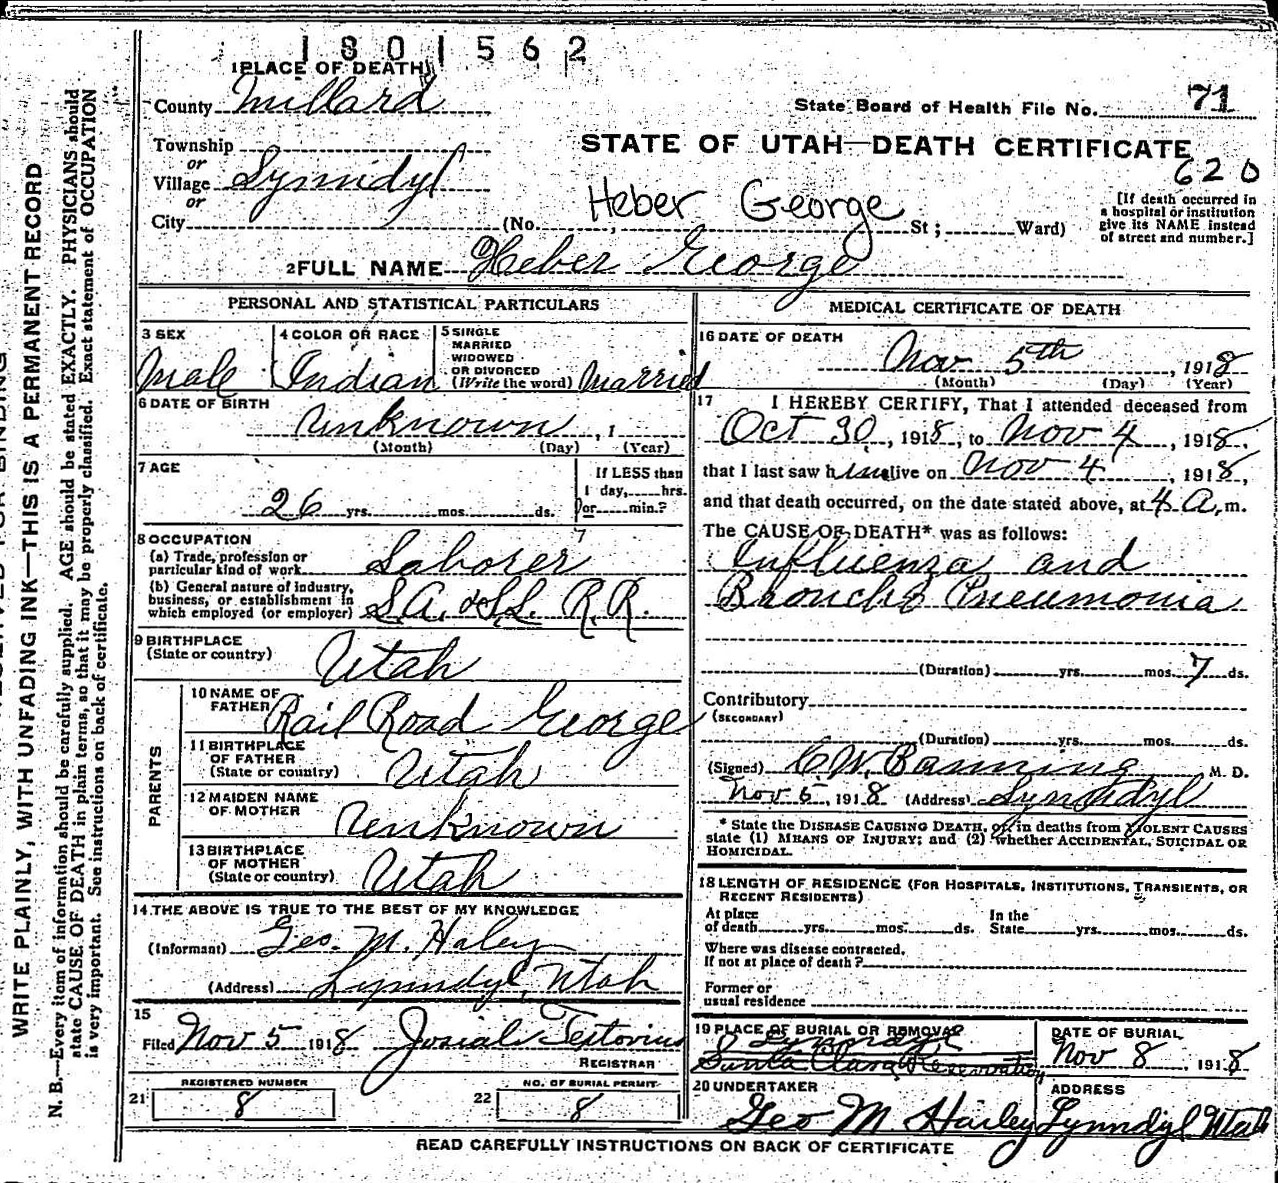 1801562
1 PLACE OF DEATH
County Millard
State Board of Health File No. 71
STATE OF UTAH—DEATH CERTIFICATE
620
Township
or
Village Lynndyl
or
City (No. Heber George St; Ward)
[If death occurred in
a hospital or institution
give its NAME instead
of street and number.]
2 FULL NAME Heber George
PERSONAL AND STATISTICAL PARTICULARS
3 SEX
Male
4 COLOR OR RACE
Indian
5 SINGLE
MARRIED
WIDOWED
OR DIVORCED
(Write the word) Married
6 DATE OF BIRTH
Unknown , 1
(Month) (Day) (Year)
7 AGE
26 yrs. mos. ds.
If LESS than
1 day, hrs.
or min.?
8 OCCUPATION
(a) Trade, profession or
particular kind of work Laborer
(b) General nature of industry,
business, or establishment in
which employed (or employer) L.A. & S.L. R.R.
9 BIRTHPLACE
(State or country) Utah
PARENTS
10 NAME OF
FATHER Rail Road George
11 BIRTHPLACE
OF FATHER
(State or country) Utah
12 MAIDEN NAME
OF MOTHER Unknown
13 BIRTHPLACE
OF MOTHER
(State or country) Utah
14 THE ABOVE IS TRUE TO THE BEST OF MY KNOWLEDGE
(Informant) Geo. M. Haley
(Address) Lynndyl, Utah
15
Filed Nov 5 1918 Josiah Testorius
REGISTRAR
REGISTERED NUMBER
21 8
NO. OF BURIAL PERMIT
22 8
MEDICAL CERTIFICATE OF DEATH
16 DATE OF DEATH
Nov 5th , 1918
(Month) (Day) (Year)
17 I HEREBY CERTIFY, That I attended deceased from
Oct 30, 1918, to Nov 4, 1918,
that I last saw him alive on Nov 4, 1918,
and that death occurred, on the date stated above, at 4 A. m.
The CAUSE OF DEATH* was as follows:
Influenza and
Broncho Pneumonia
(Duration) yrs. mos. 7 ds.
Contributory
(SECONDARY)
(Duration) yrs. mos. ds.
(Signed) C. W. Banning M. D.
Nov 5, 1918 (Address) Lynndyl
* State the DISEASE CAUSING DEATH, or, in deaths from VIOLENT CAUSES
state (1) MEANS OF INJURY; and (2) whether ACCIDENTAL, SUICIDAL OR
HOMICIDAL.
18 LENGTH OF RESIDENCE (FOR HOSPITALS, INSTITUTIONS, TRANSIENTS, OR
RECENT RESIDENTS)
At place
of death yrs. mos. ds.
In the
State yrs. mos. ds.
Where was disease contracted,
If not at place of death?
Former or
usual residence
19 PLACE OF BURIAL OR REMOVAL
Lynndyl
Santa Clara Reservation
DATE OF BURIAL
Nov 8, 1918
20 UNDERTAKER
Geo M. Hailey
ADDRESS
Lynndyl Utah
READ CAREFULLY INSTRUCTIONS ON BACK OF CERTIFICATE
WRITE PLAINLY, WITH UNFADING INK—THIS IS A PERMANENT RECORD
N. B.—Every item of information should be carefully supplied. AGE should be stated EXACTLY. PHYSICIANS should
state CAUSE OF DEATH in plain terms, so that it may be properly classified. Exact statement of OCCUPATION
is very important. See instructions on back of certificate.